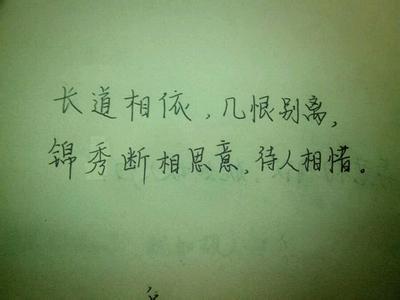 长道相依,几恨别离,
锦秀断相思意,待人相惜。